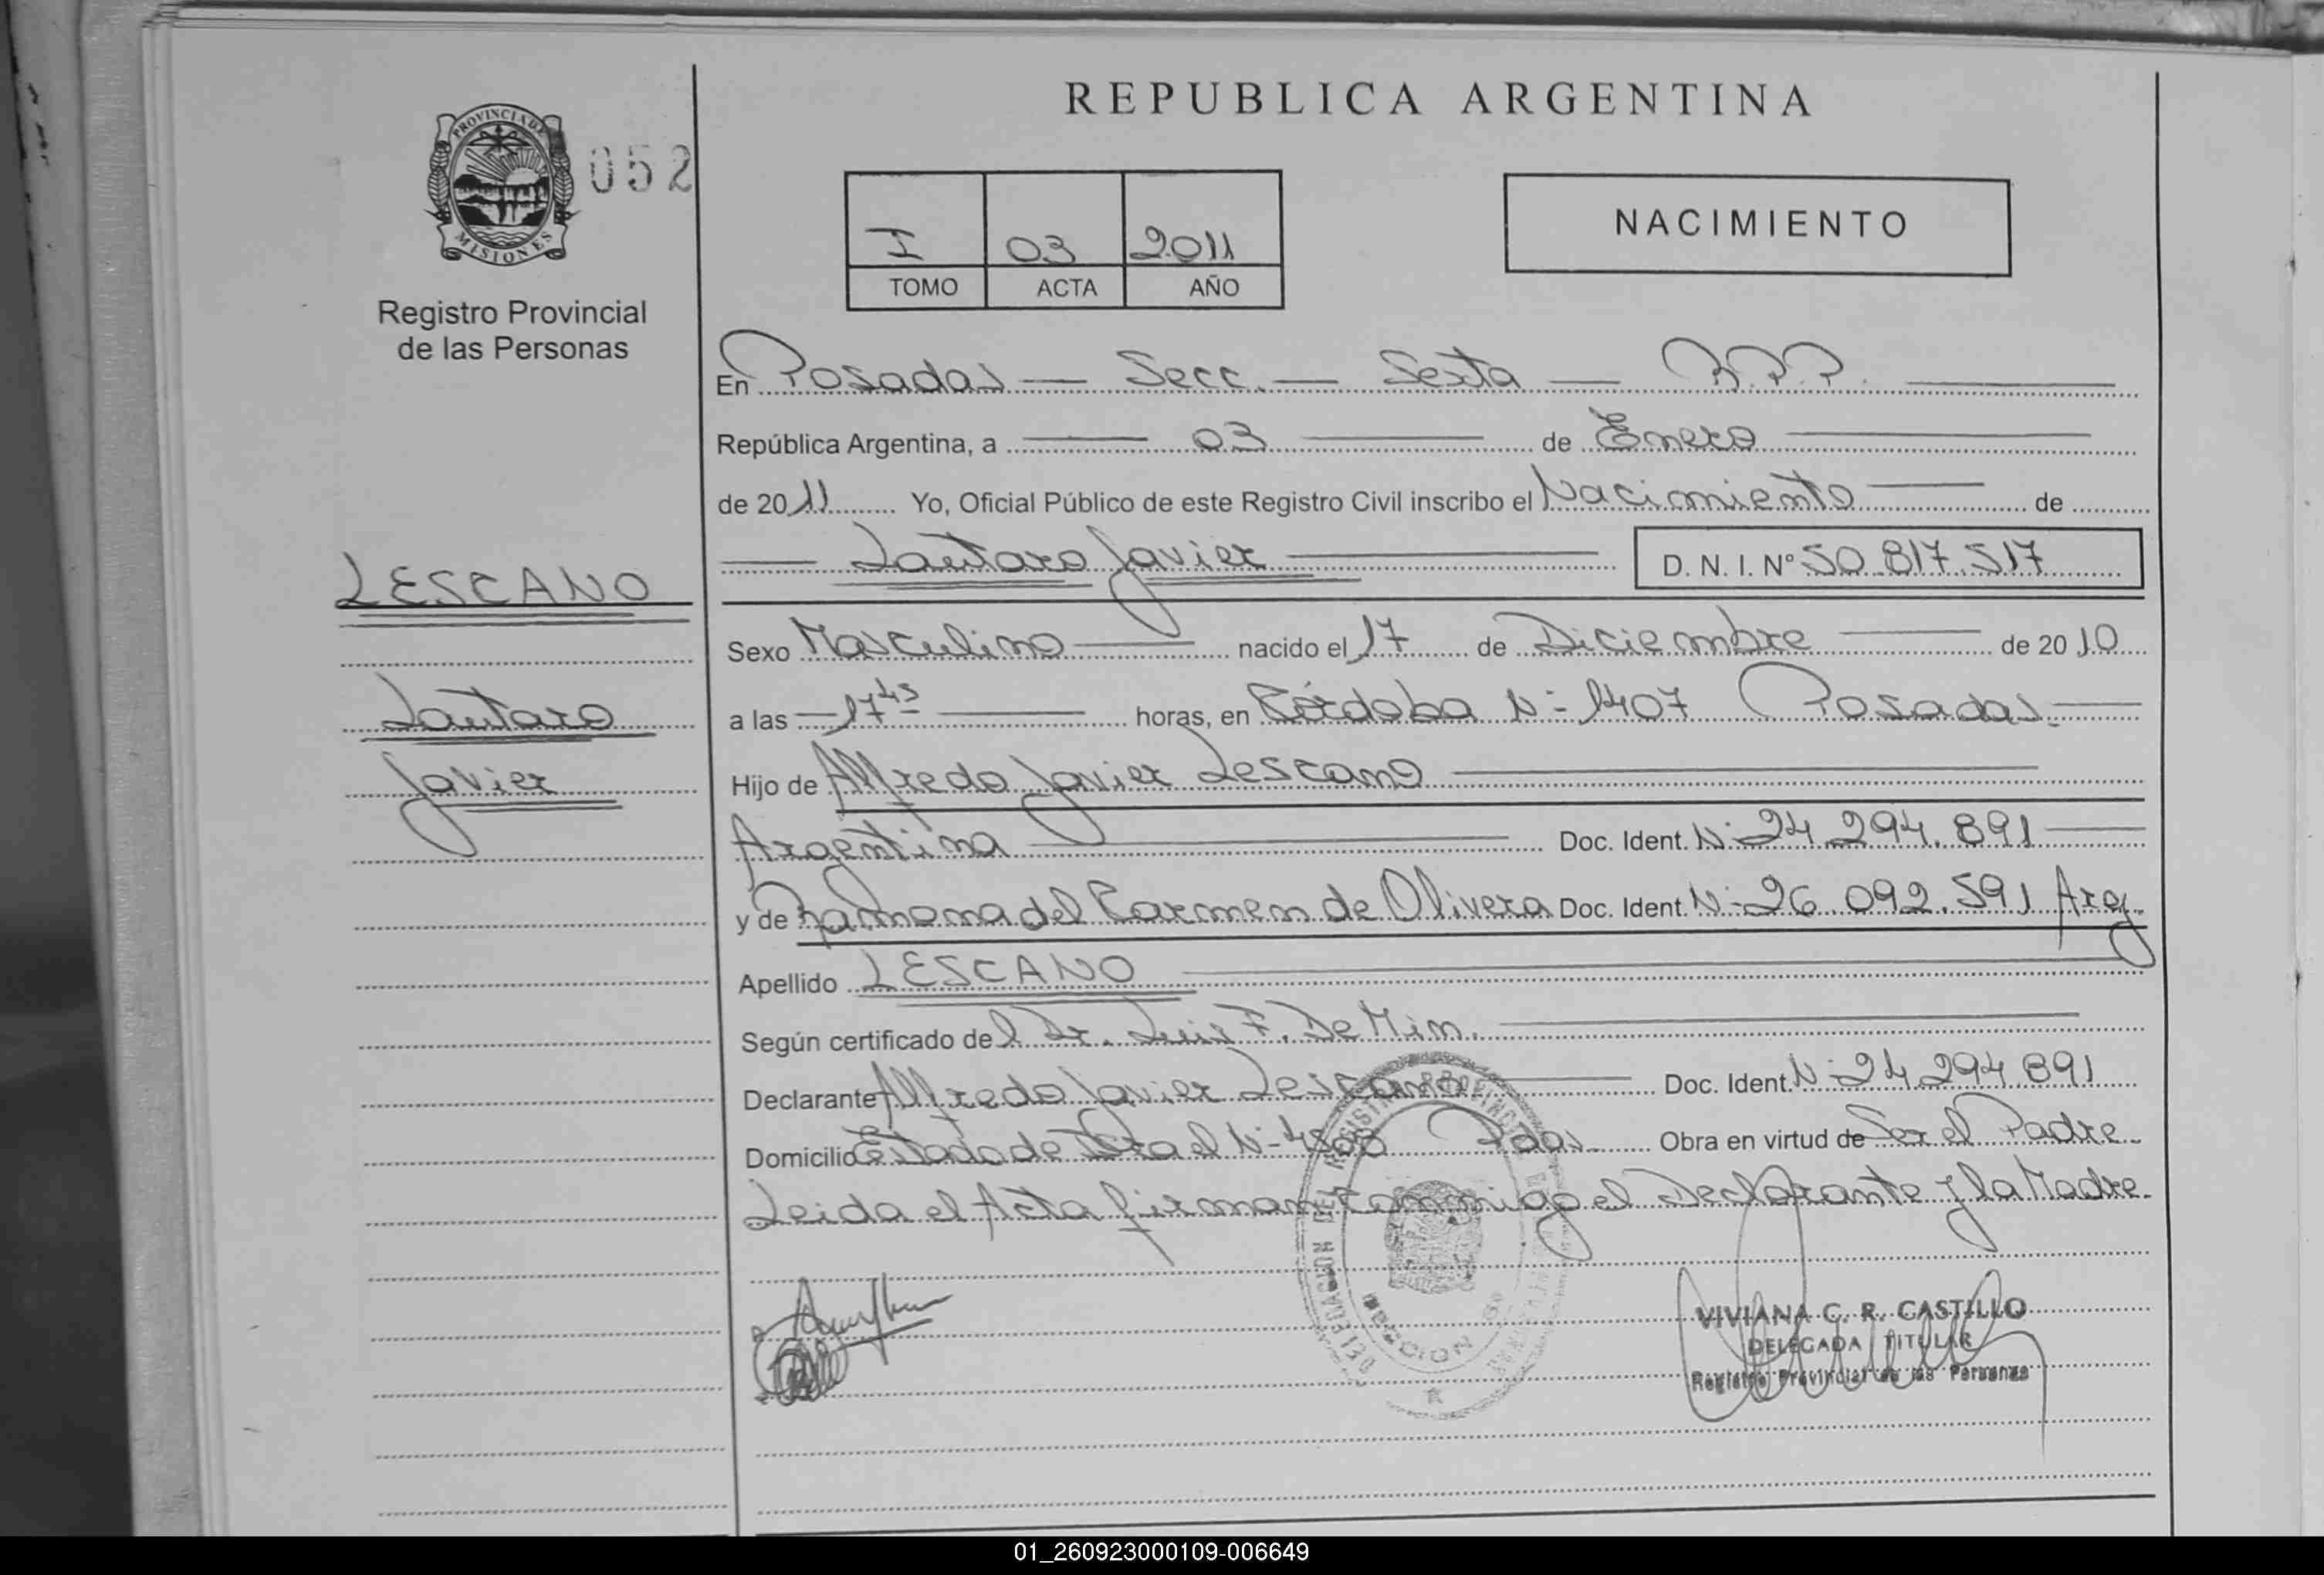 REPUBLICA ARGENTINA
PROVINCIA DE
MISIONES
052
Registro Provincial
de las Personas
I 03 2011
TOMO ACTA AÑO
NACIMIENTO
En Posadas — Secc. — Sexta — R.P.P.
República Argentina, a 03 de Enero
de 2011 Yo, Oficial Público de este Registro Civil inscribo el Nacimiento de
Lautaro Javier D. N. I. Nº 50.817.517
LESCANO
Lautaro
Javier
Sexo Masculino nacido el 17 de Diciembre de 2010
a las 17 45 horas, en Córdoba Nº 1407 Posadas.
Hijo de Alfredo Javier Lescano
Argentina Doc. Ident. Nº 24.294.891
y de Ramona del Carmen de Olivera Doc. Ident. Nº 26.092.591 Arg.
Apellido LESCANO
Según certificado del Dr. Luis F. De Mim.
Declarante Alfredo Javier Lescano Doc. Ident. Nº 24.294.891
Domicilio Estado de Israel Nº Pdas. Obra en virtud de Ser el Padre.
Leida el Acta firman conmigo el Declarante y la Madre.
VIVIANA C. R. CASTILLO
DELEGADA TITULAR
Registro Provincial de las Personas
01_260923000109-006649